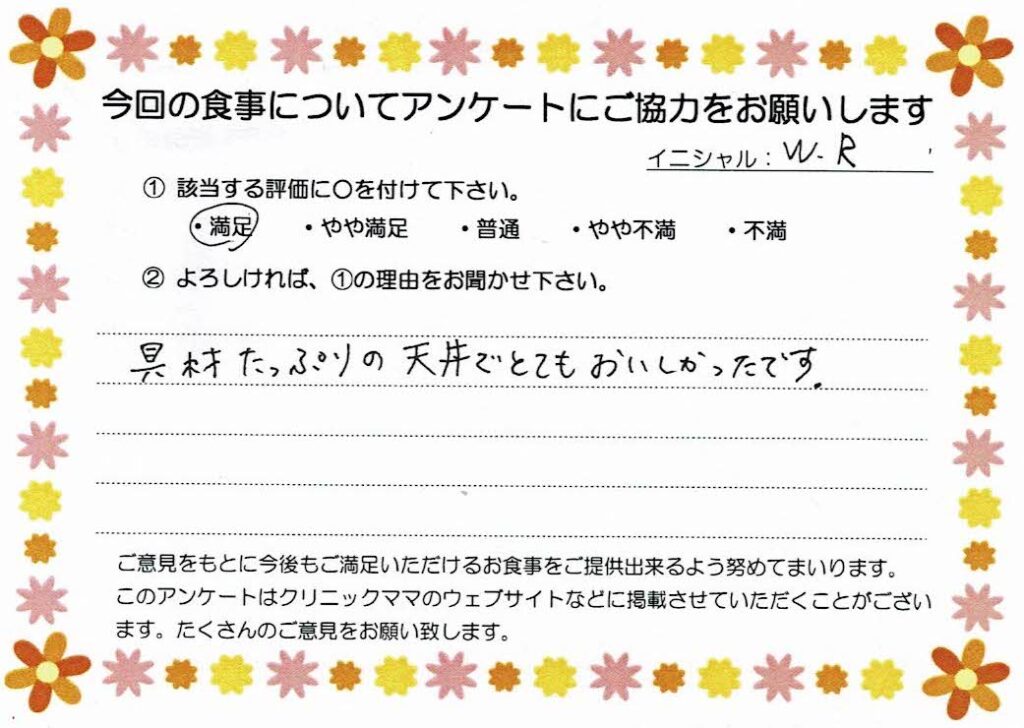 今回の食事についてアンケートにご協力をお願いします
イニシャル：W.R
① 該当する評価に○を付けて下さい。
・満足 ・やや満足 ・普通 ・やや不満 ・不満
② よろしければ、①の理由をお聞かせ下さい。
具材たっぷりの天丼でとてもおいしかったです。
ご意見をもとに今後もご満足いただけるお食事をご提供出来るよう努めてまいります。
このアンケートはクリニックママのウェブサイトなどに掲載させていただくことがござい
ます。たくさんのご意見をお願い致します。